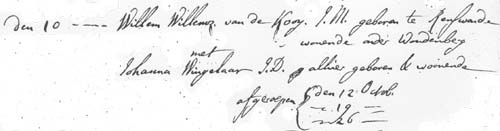 den 10 ---- Willem Willemz. van de Kooy. J.M. geboren te Renswoude
wonende onder Woudenberg
met
Johanna Wingelaar J.D. alhier geboren & woonende
afgeroepen { den 12. Octob.
- 19 -
- 26 -